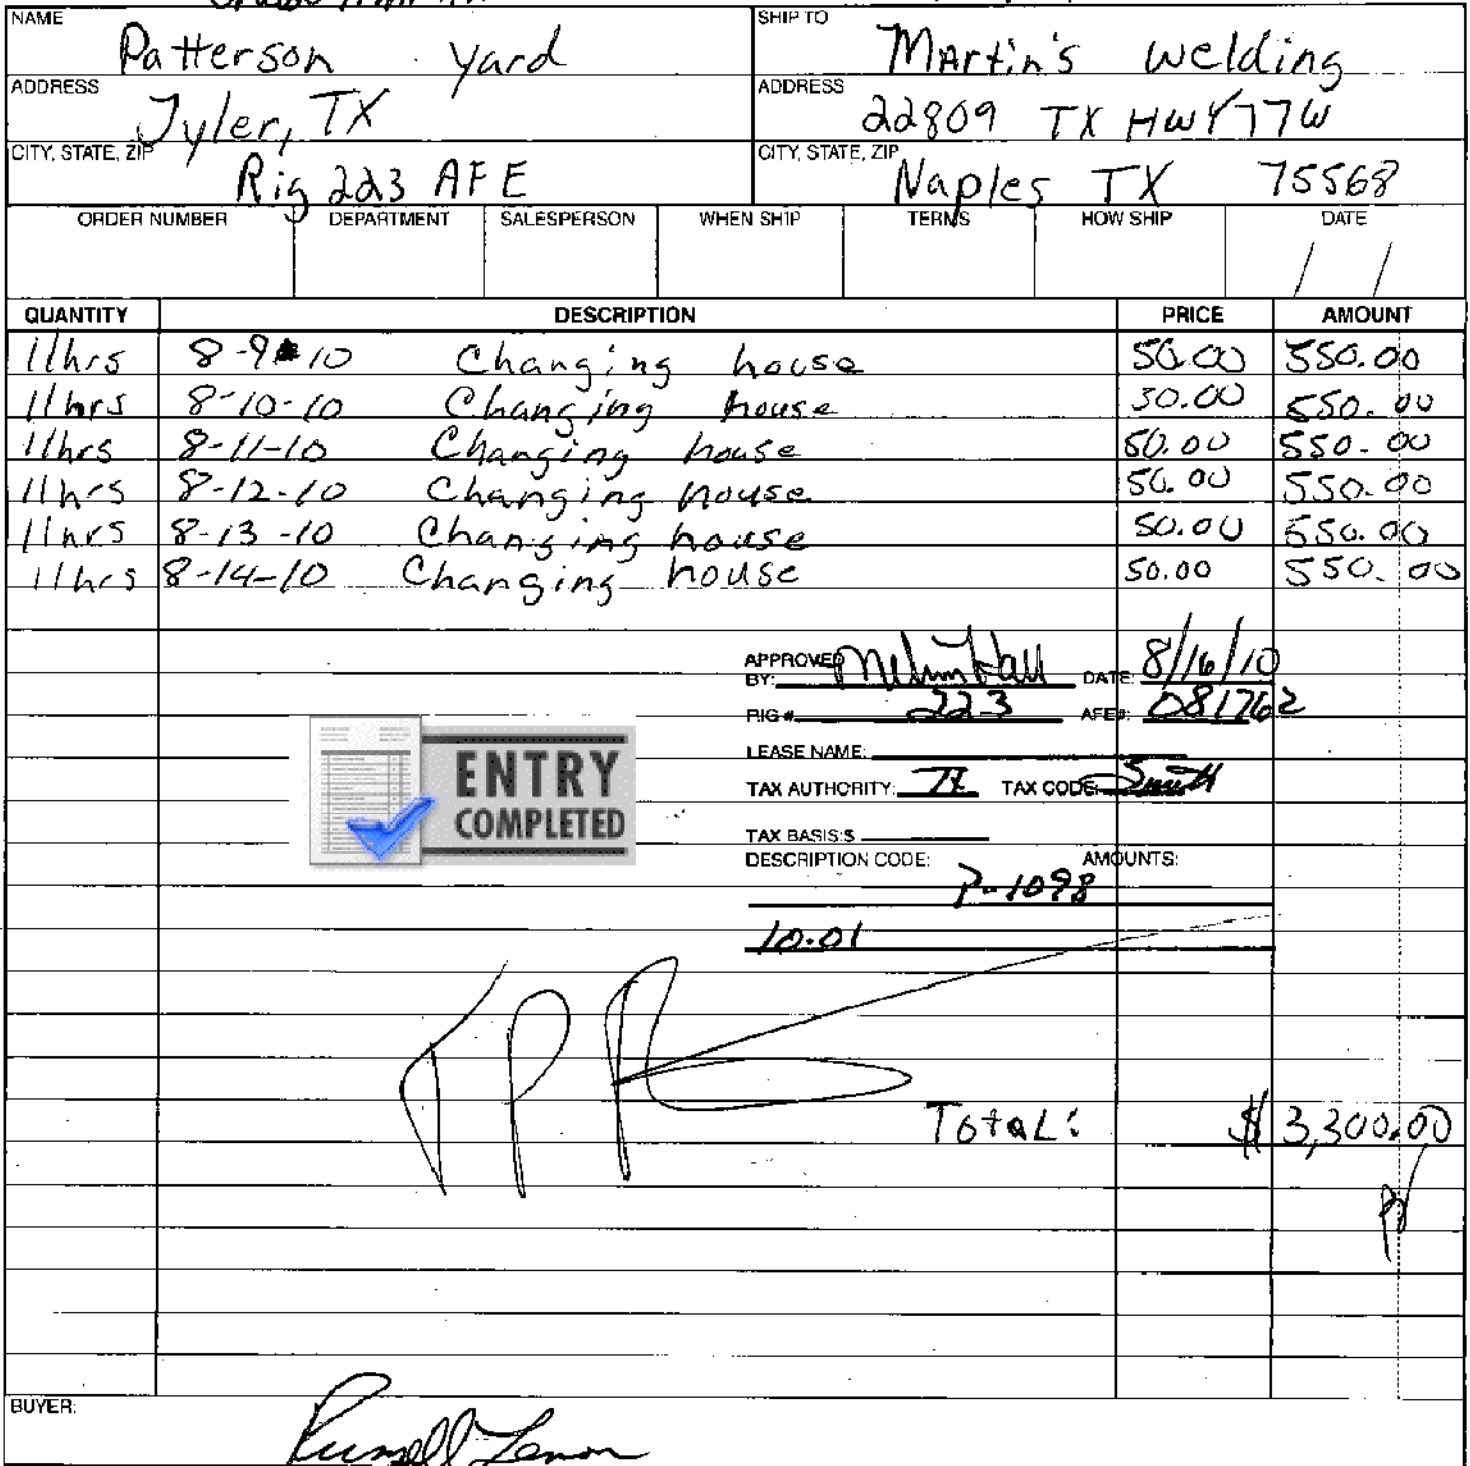 NAME
Patterson yard
SHIP TO
Martin's welding
ADDRESS
Tyler, TX
ADDRESS
22809 TX HWY 77W
CITY, STATE, ZIP
Rig 223 AFE
CITY, STATE, ZIP
Naples TX 75568
ORDER NUMBER DEPARTMENT SALESPERSON WHEN SHIP TERMS HOW SHIP DATE
/ /
QUANTITY DESCRIPTION PRICE AMOUNT
11hrs 8-9-10 Changing house 50.00 550.00
11hrs 8-10-10 Changing house 50.00 550.00
11hrs 8-11-10 Changing house 50.00 550.00
11hrs 8-12-10 Changing house 50.00 550.00
11hrs 8-13-10 Changing house 50.00 550.00
11hrs 8-14-10 Changing house 50.00 550.00
APPROVED BY: DATE: 8/16/10
RIG # 223 AFE#: 081762
LEASE NAME:
TAX AUTHORITY: TX TAX CODE: Smith
TAX BASIS:$
DESCRIPTION CODE: AMOUNTS:
P-1098
10.01
ENTRY
COMPLETED
TPR
Total: $3,300.00
BUYER: